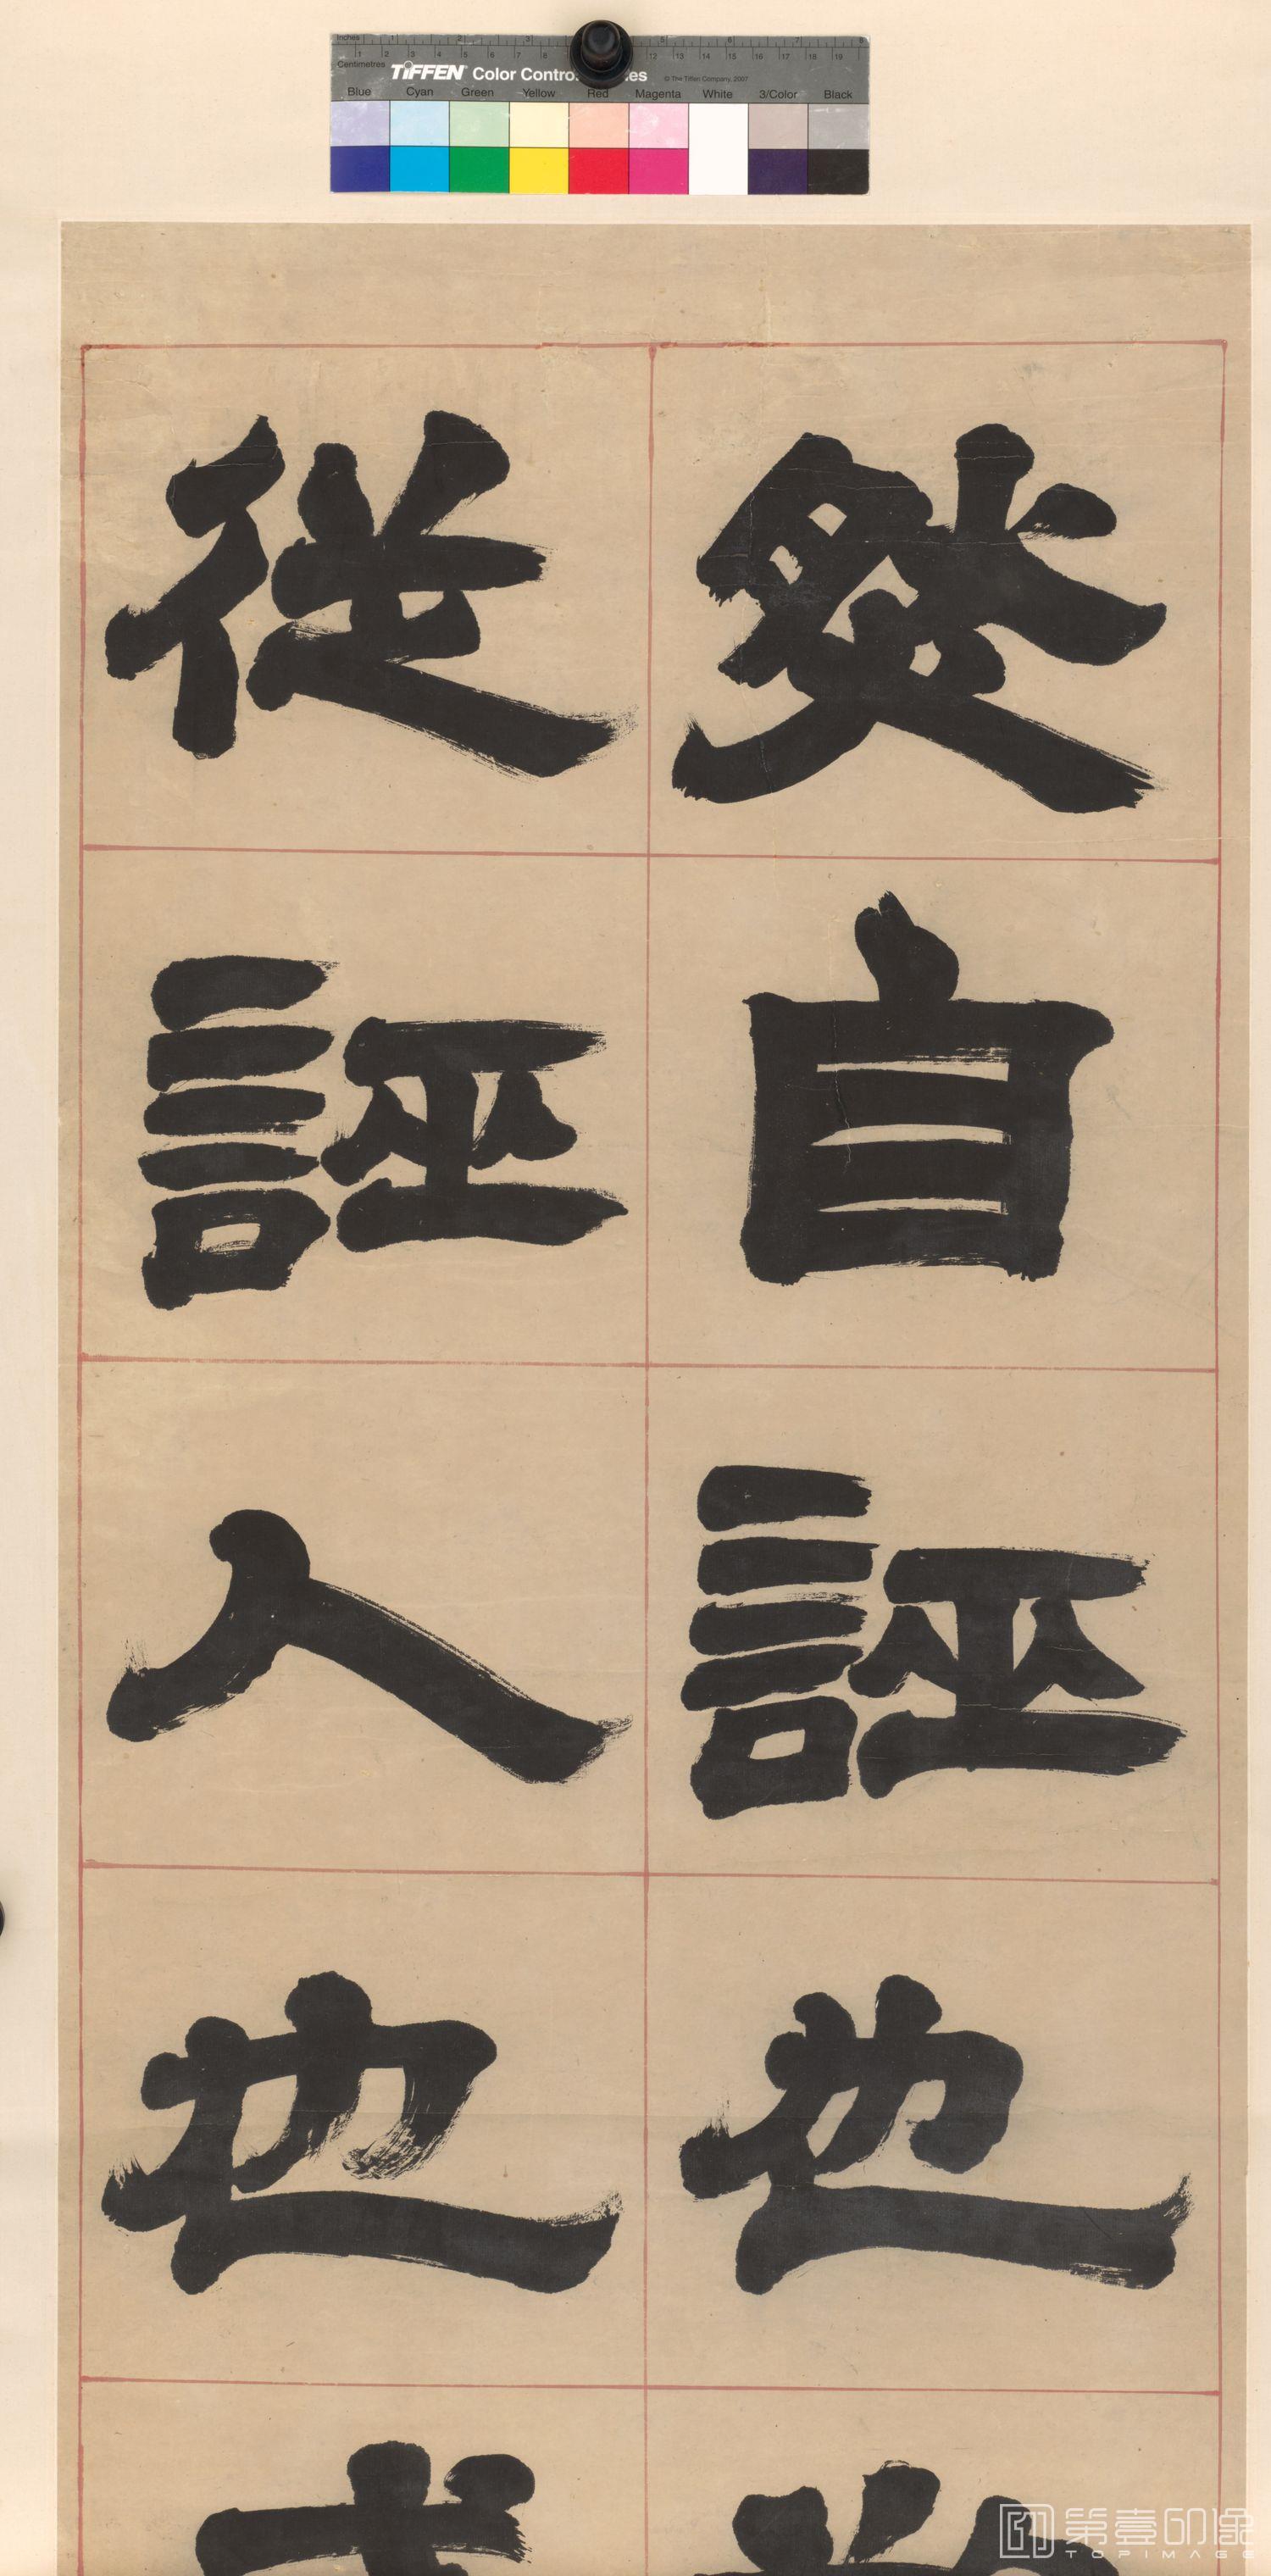 Inches 1 2 3 5 6 7 8
1 2 3 4 5 6 7 8 12 13 14 15 16 17 18 19
Centimetres
TIFFEN Color Contro
© The Tiffen Company, 2007
Blue Cyan Green Yellow Red Magenta White 3/Color Black
然自誣也
從誣人也
第壹印像
TOPIMAGE